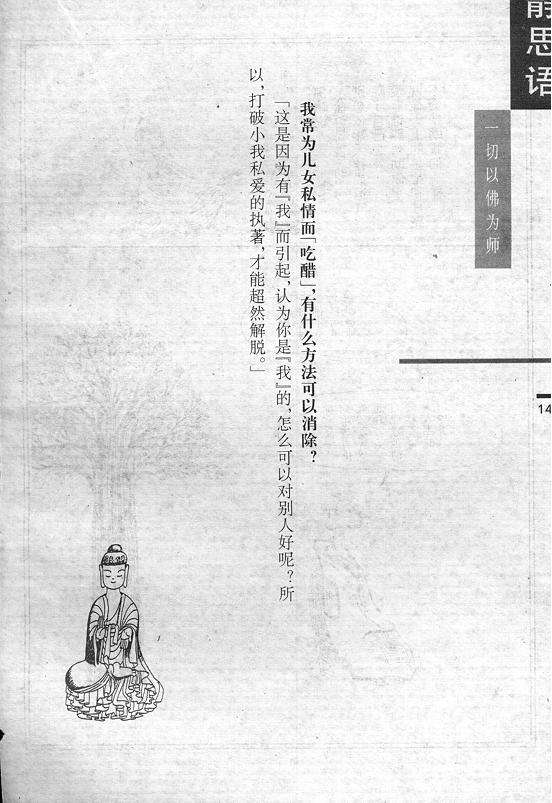 静思语
一切以佛为师
我常为儿女私情而「吃醋」，有什么方法可以消除？
「这是因为有『我』而引起，认为你是『我』的，怎么可以对别人好呢？所
以，打破小我私爱的执著，才能超然解脱。」
14